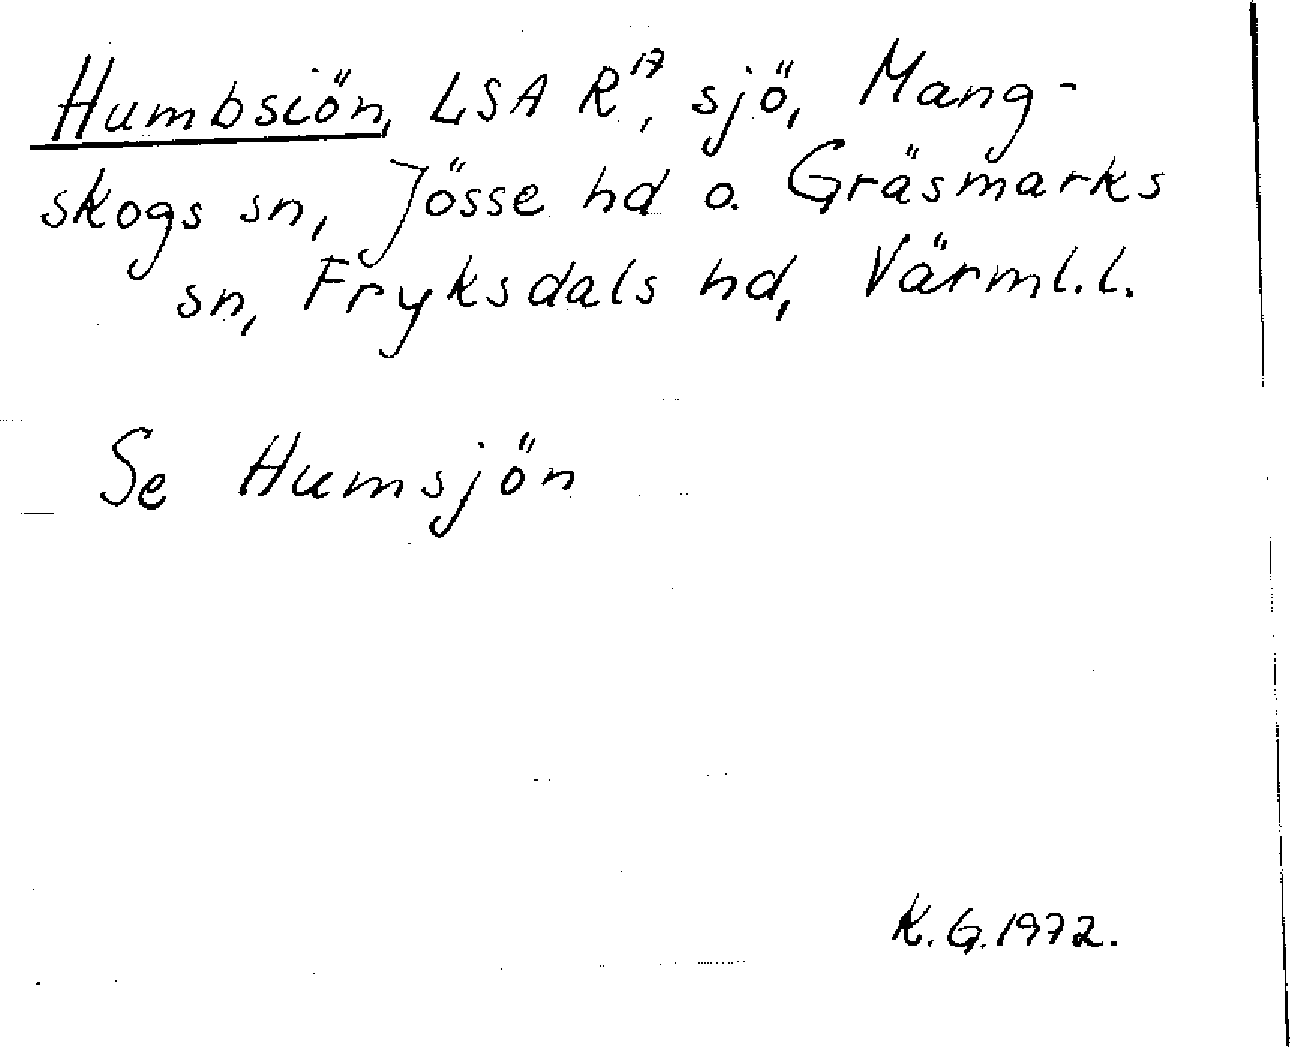 Humbsiön, LSA R¹⁷, sjö, Mang-
skogs sn, Jösse hd o. Gräsmarks
sn, Fryksdals hd, Värml.l.
Se Humsjön
K.G.1972.